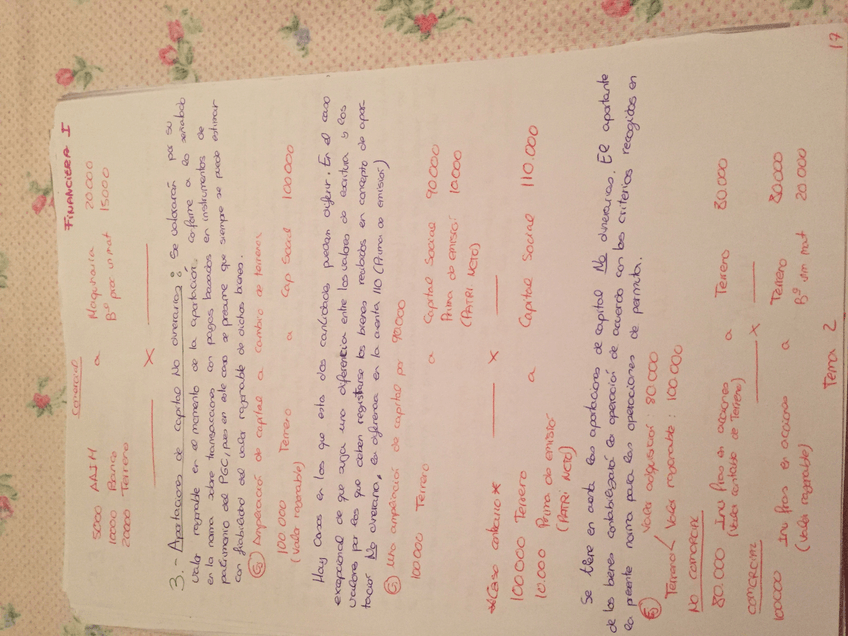 FINANCIERA I
Comercial
5000 AAIM a Maquinaria 20.000
10000 Banco Bº proc in mat 15000
20000 Terreno
x
3.- Aportaciones de capital No dinerarias: Se valorarán por su
valor razonable en el momento de la aportación, conforme a lo señalado
en la norma sobre transacciones con pagos basados en instrumentos de
patrimonio del PGC, pues en este caso se presume que siempre se puede estimar
con fiabilidad del valor razonable de dichos bienes.
Ej Ampliación de capital a cambio de terrenos
100.000 Terreno a Cap Social 100.000
(valor razonable)
Hay casos en los que esta dos cantidades puedan diferir. En el caso
excepcional de que surja una diferencia entre los valores de escritura y los
valores por los que deben registrarse los bienes recibidos en concepto de apor-
tación No dineraria, la diferencia en la cuenta 110 (Prima de emisión)
Ej Una ampliación de capital por 90.000
100.000 Terreno a Capital Social 90.000
Prima de emisión 10.000
(PATRI NETO)
x
*Caso contrario*
100.000 Terreno a Capital Social 110.000
10.000 Prima de emisión
(PATRI NETO)
Se tiene en cuenta las aportaciones de capital No dinerarias. El aportante
de los bienes contabilizará la operación de acuerdo con los criterios recogidos en
la presente norma para las operaciones de permuta.
Ej Valor adquisición 80.000
Terreno Valor razonable: 100.000
No comercial
80.000 Inv finas en acciones a Terreno 80.000
(Valor contable de Terreno)
x
comercial
100000 Inv finas en acciones a Terreno 80.000
(Valor razonable) Bº inm mat 20.000
Tema 2
17